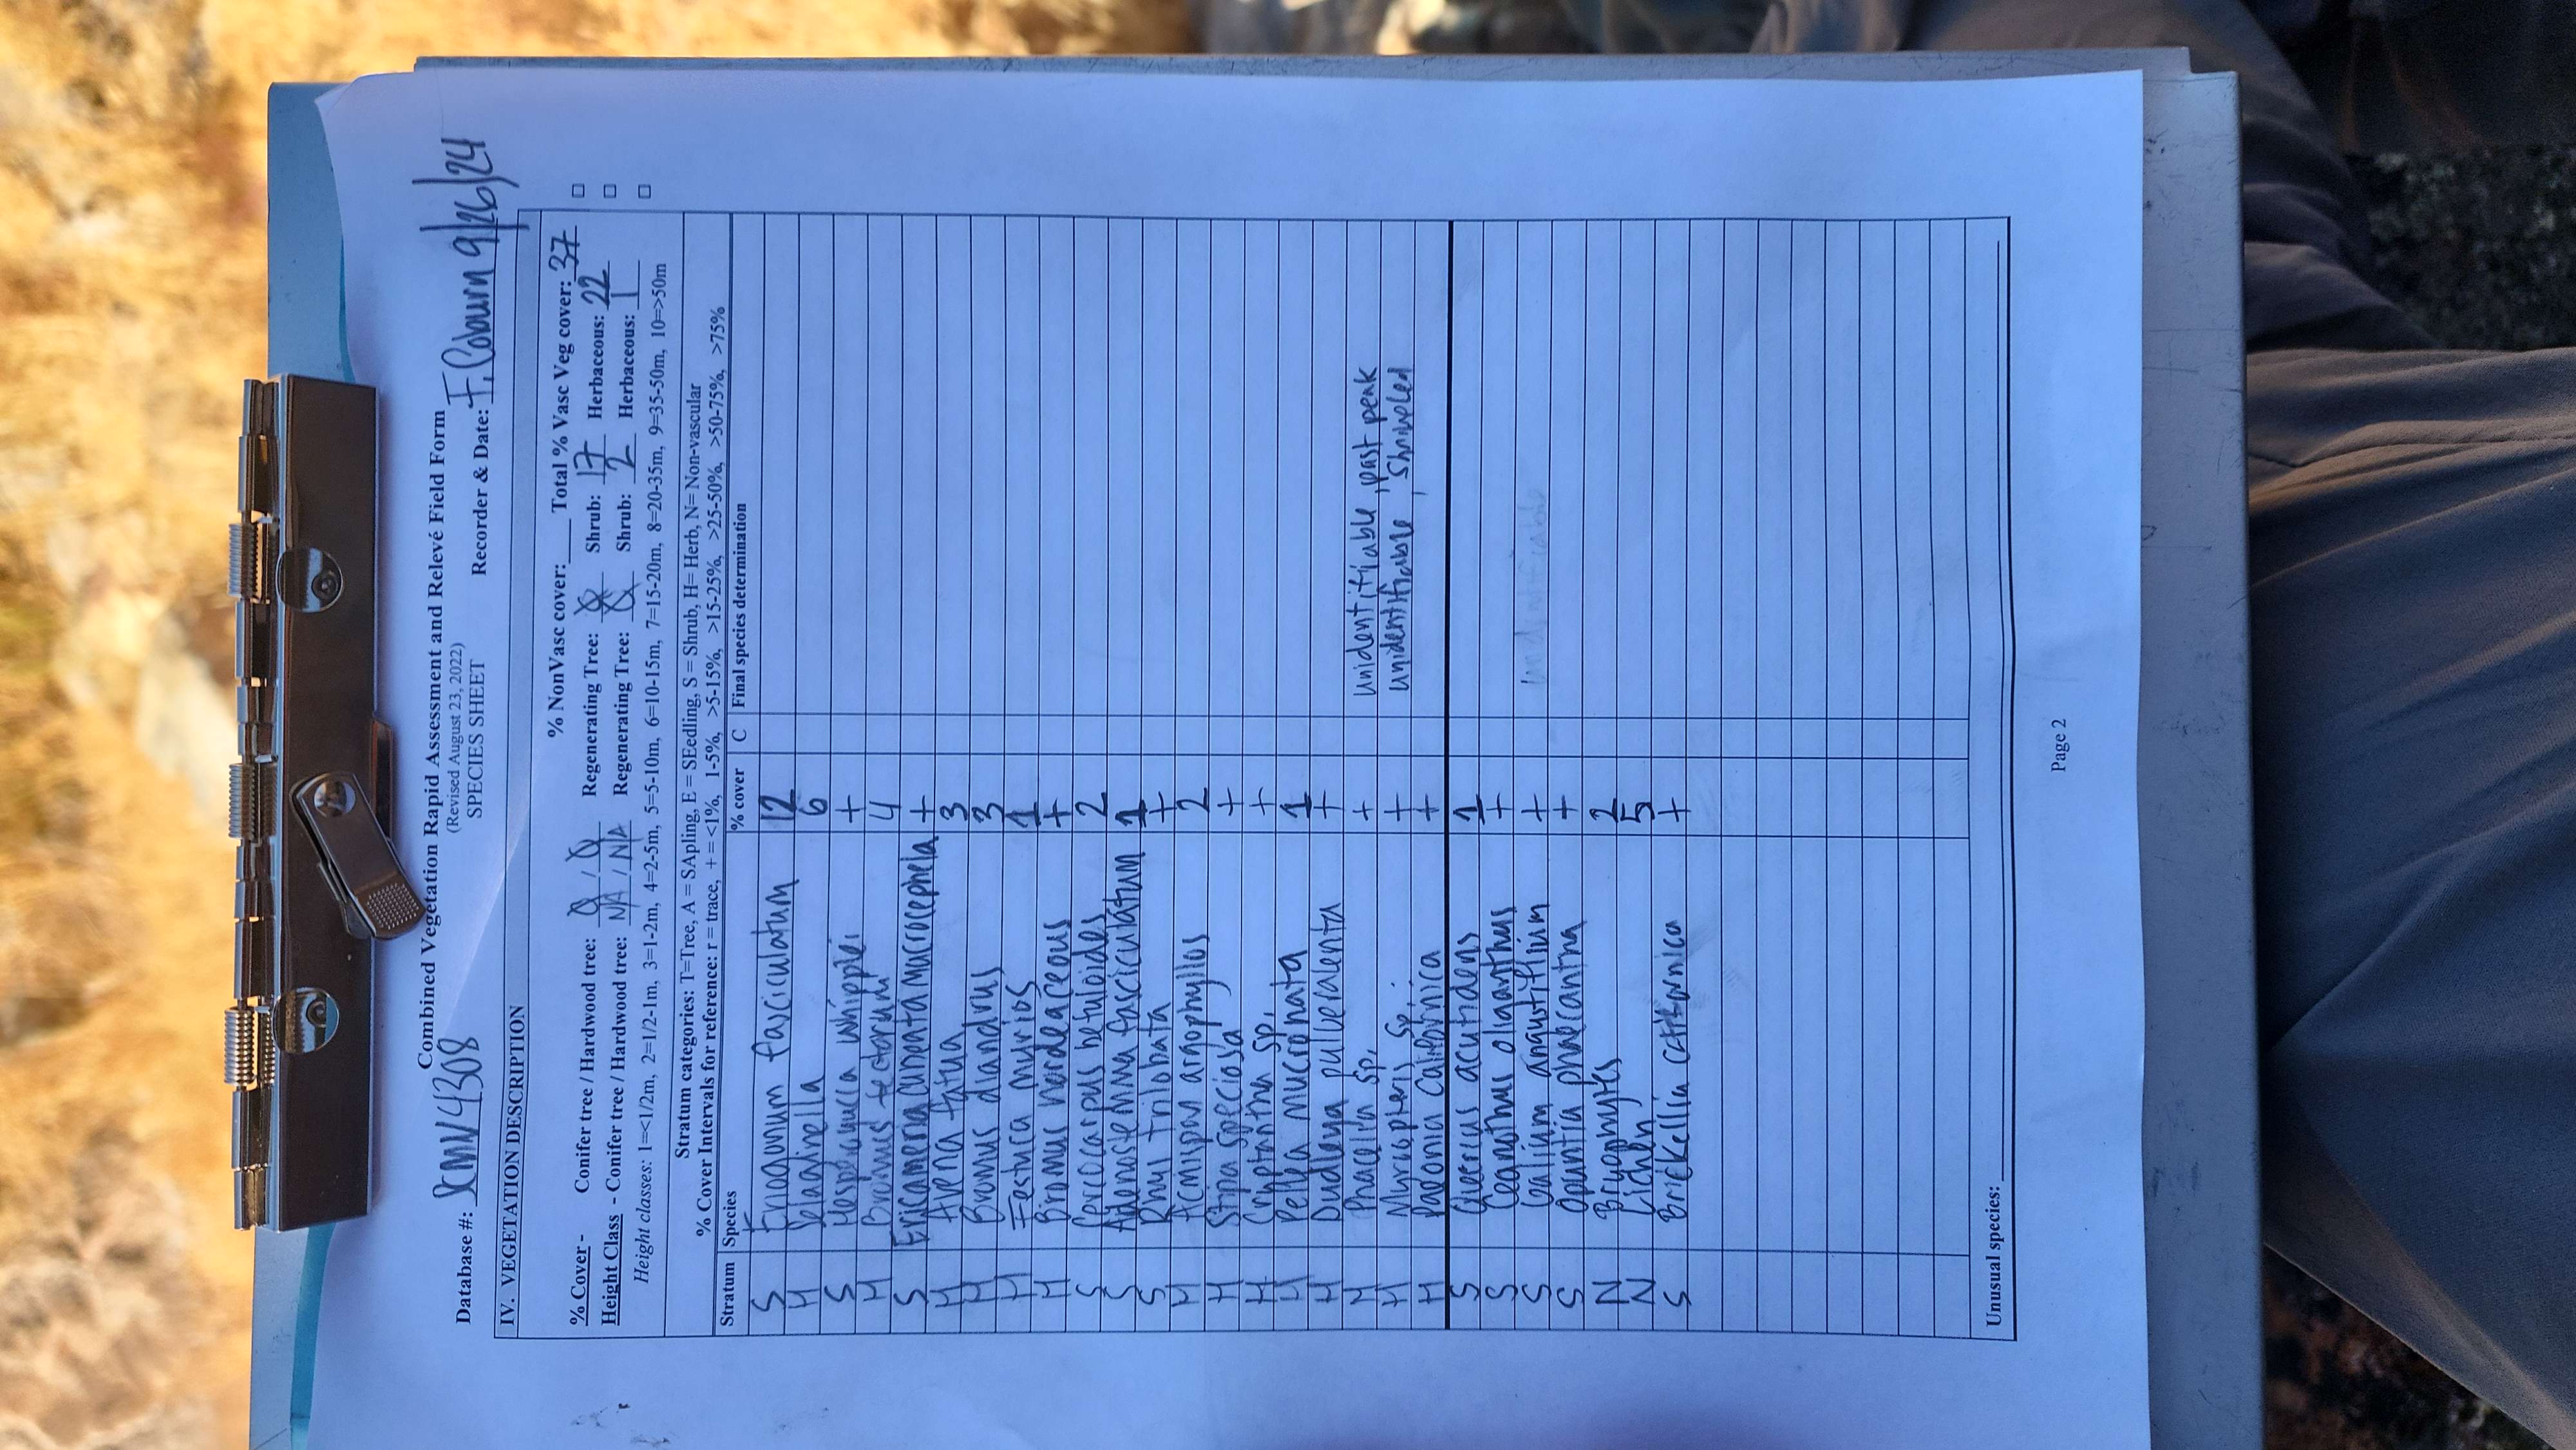 Combined Vegetation Rapid Assessment and Relevé Field Form
(Revised August 23, 2022)
Database #: SPECIES SHEET Recorder & Date: F. Coburn 9/26/24
IV. VEGETATION DESCRIPTION
% NonVasc cover: ____ Total % Vasc Veg cover: 37 □
% Cover - Conifer tree / Hardwood tree: 0 / 0 Regenerating Tree: 0 Shrub: 17 Herbaceous: 22 □
Height Class - Conifer tree / Hardwood tree: NA / NA Regenerating Tree: 0 Shrub: 2 Herbaceous: 1 □
Height classes: 1=<1/2m, 2=1/2-1m, 3=1-2m, 4=2-5m, 5=5-10m, 6=10-15m, 7=15-20m, 8=20-35m, 9=35-50m, 10=>50m
Stratum categories: T=Tree, A = SApling, E = SEedling, S = Shrub, H= Herb, N= Non-vascular
% Cover Intervals for reference: r = trace, + = <1%, 1-5%, >5-15%, >15-25%, >25-50%, >50-75%, >75%
Stratum Species % cover C Final species determination
S Eriogonum fasciculatum 12
H Selaginella 6
S Hesperoyucca whipplei +
H Bromus tectorum 4
S Ericameria cuneata macrocephela +
H Avena fatua 3
H Bromus diandrus 3
H Festuca murios 1
H Bromus hordeaceous +
S Cercocarpus betuloides 2
S Adenostemma fasciculatum 1
S Rhus trilobata +
H Acmispon argophyllus 2
H Stipa speciosa +
H Cryptantha sp. +
H Pellea mucronata 1
H Dudleya pulveralenta +
H Phacelia sp. + Unidentifiable, past peak
H Myriopteris sp. + unidentifiable, shriveled
H Paeonia californica +
S Quercus acutidens 1
S Ceanothus oliganthus +
S Galium angustiflium +
S Opuntia phaecantha +
N Bryophytes 2
N Lichen 5
S Brickellia californica +
Unusual species:
Page 2